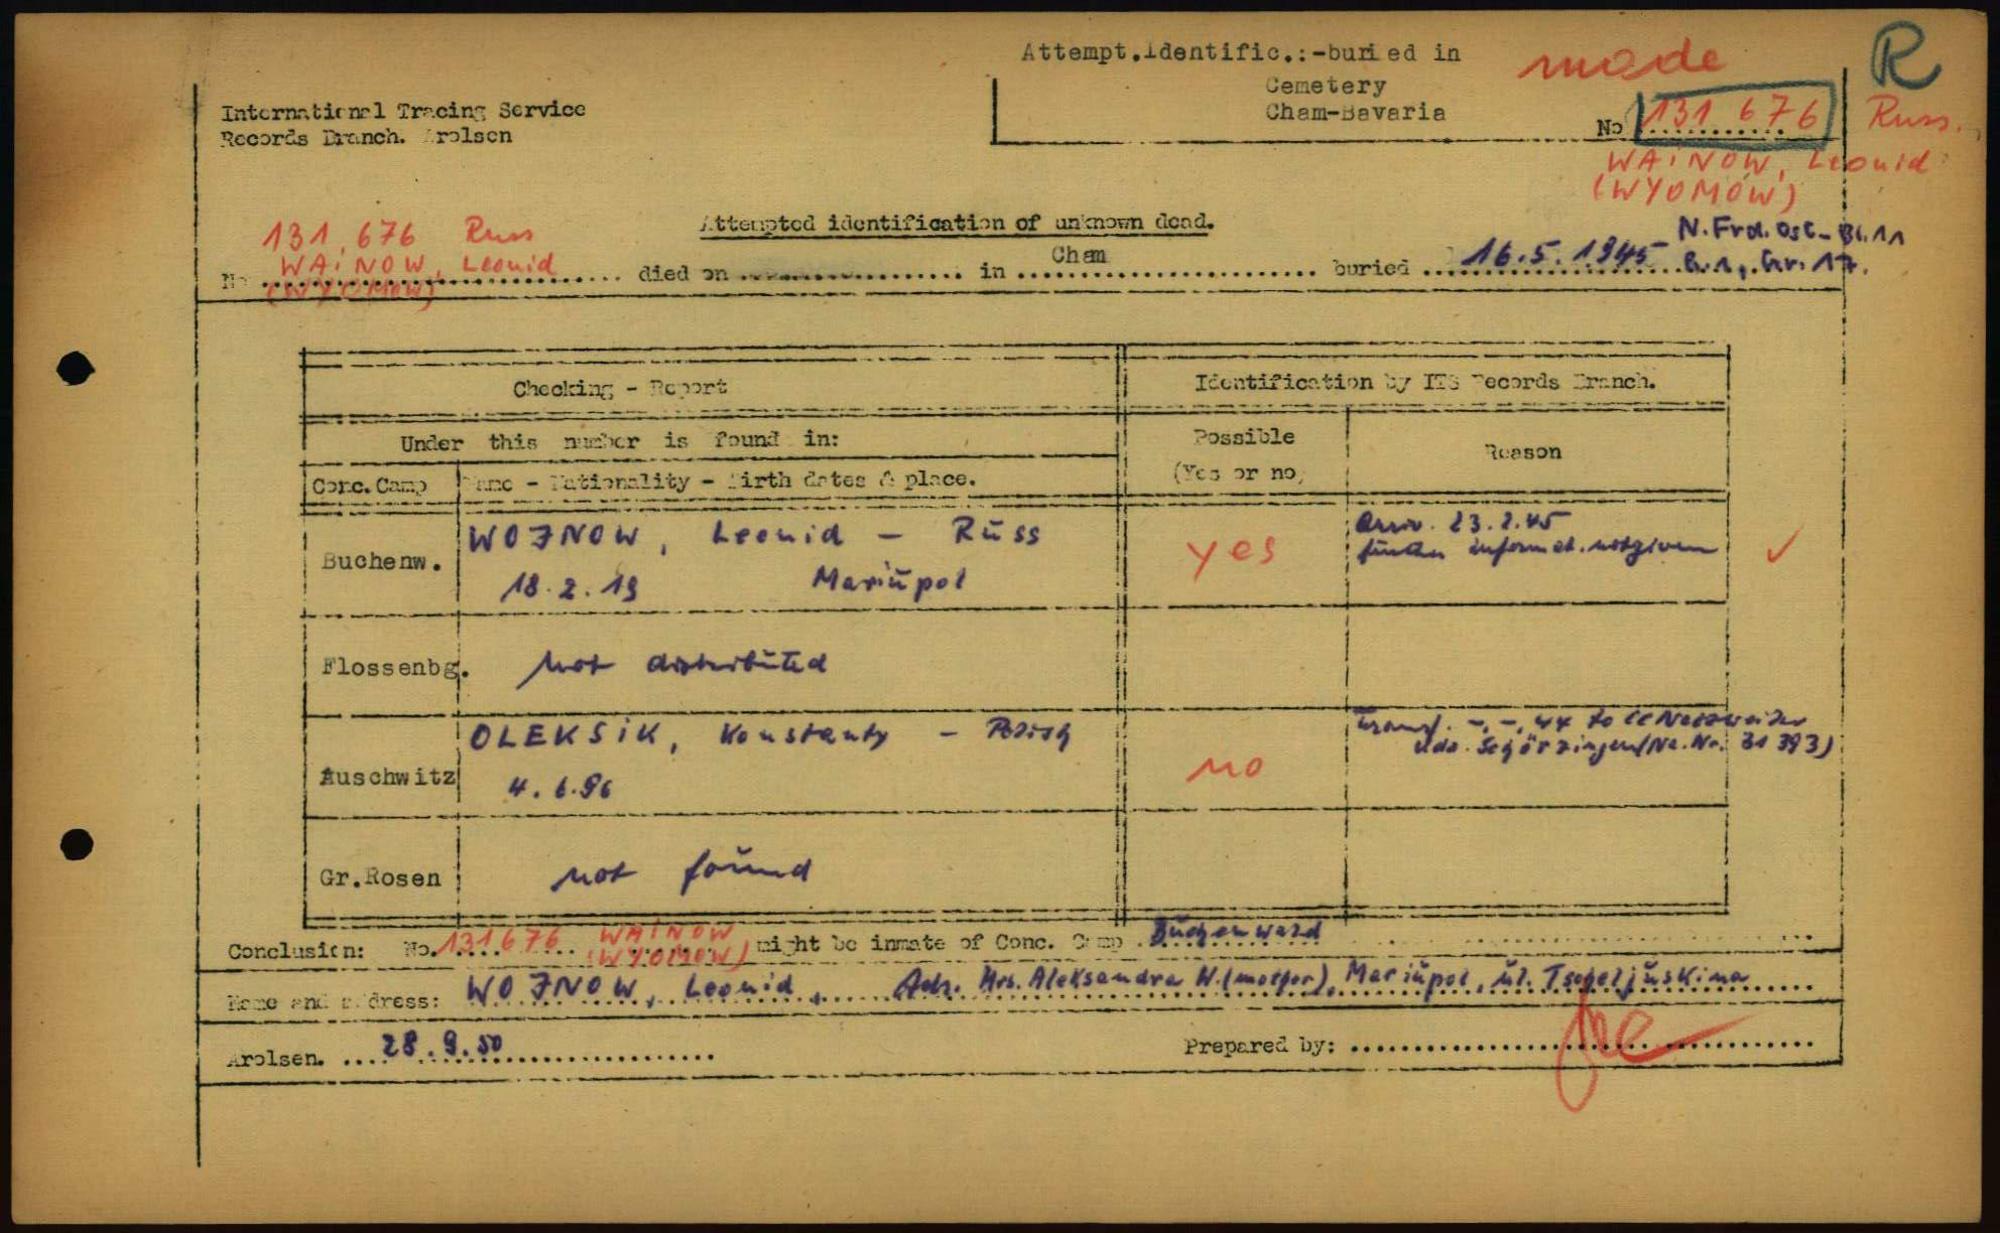 Attempt.Identific.:-buried in
Cemetery
Cham-Bavaria
made
R
No 131 676
Russ.
WAINOW, Leonid
(WYOMOW)
International Tracing Service
Records Branch. Arolsen
Attempted identification of unknown dead.
131.676 Russ
WAINOW, Leonid
(WYOMOW)
No. died on in Cham buried 16.5.1945
N.Frd.Ost-Bl.11
R.1, Gr.17.
Checking - Report
Identification by ITS Records Branch.
Under this number is found in:
Possible
(Yes or no)
Reason
Conc.Camp
Name - Nationality - Birth dates & place.
Buchenw.
WOJNOW, Leonid - Russ
18.2.19 Mariupol
yes
Arriv. 23.2.45
further informat. not given
Flossenbg.
not distributed
Auschwitz
OLEKSIK, Konstanty - Polish
4.6.96
no
Transf. -.-.44 to CC Natzweiler
Kdo. Schörzingen (Na.Nr. 31 393)
Gr.Rosen
not found
Conclusion: No. 131676 WAINOW
(WYOMOW) might be inmate of Conc. Camp Buchenwald
Name and address: WOJNOW, Leonid, Adr. Mrs. Aleksandra W. (mother), Mariupol, ul. Tsogeljuskina
Arolsen. 28.9.50
Prepared by: